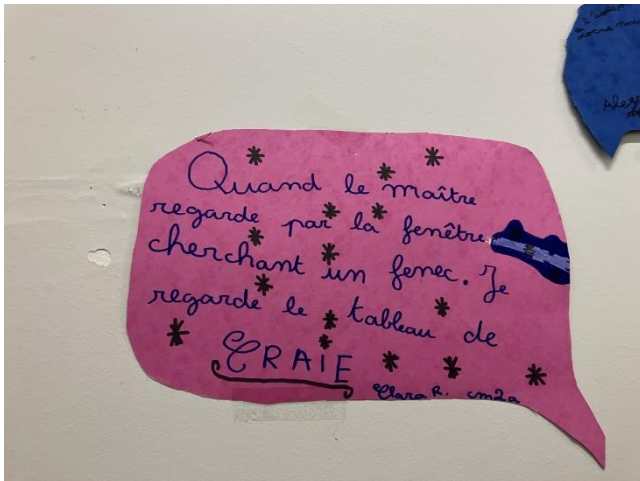 Quand le maître
regarde par la fenêtre
cherchant un fenec. Je
regarde le tableau de
CRAIE
Clara R. cm2a